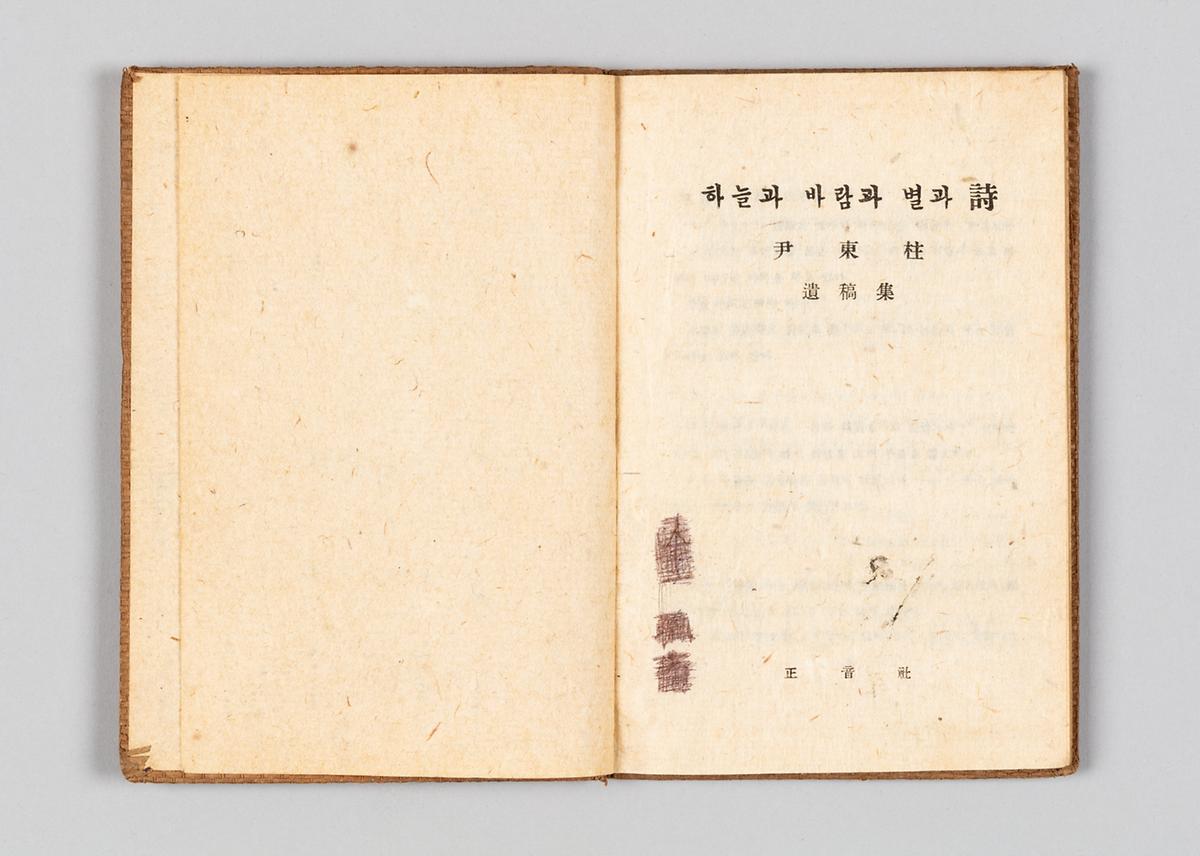 하늘과 바람과 별과 詩
尹東柱
遺稿集
正音社